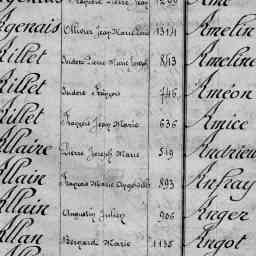 Agenais Ollivier Jean Marie 1314 Amelin
Rillet Isidore Pierre Marie Joseph 843 Ameline
Rillet Isidore François 746 Améon
Rillet François Jean Marie 636 Amice
Allaire Pierre Joseph Marie 519 Andrieu
Allain François Marie 893 Anfray
Allain Augustin Julien 906 Anger
Allan Bernard Marie 1135 Angot